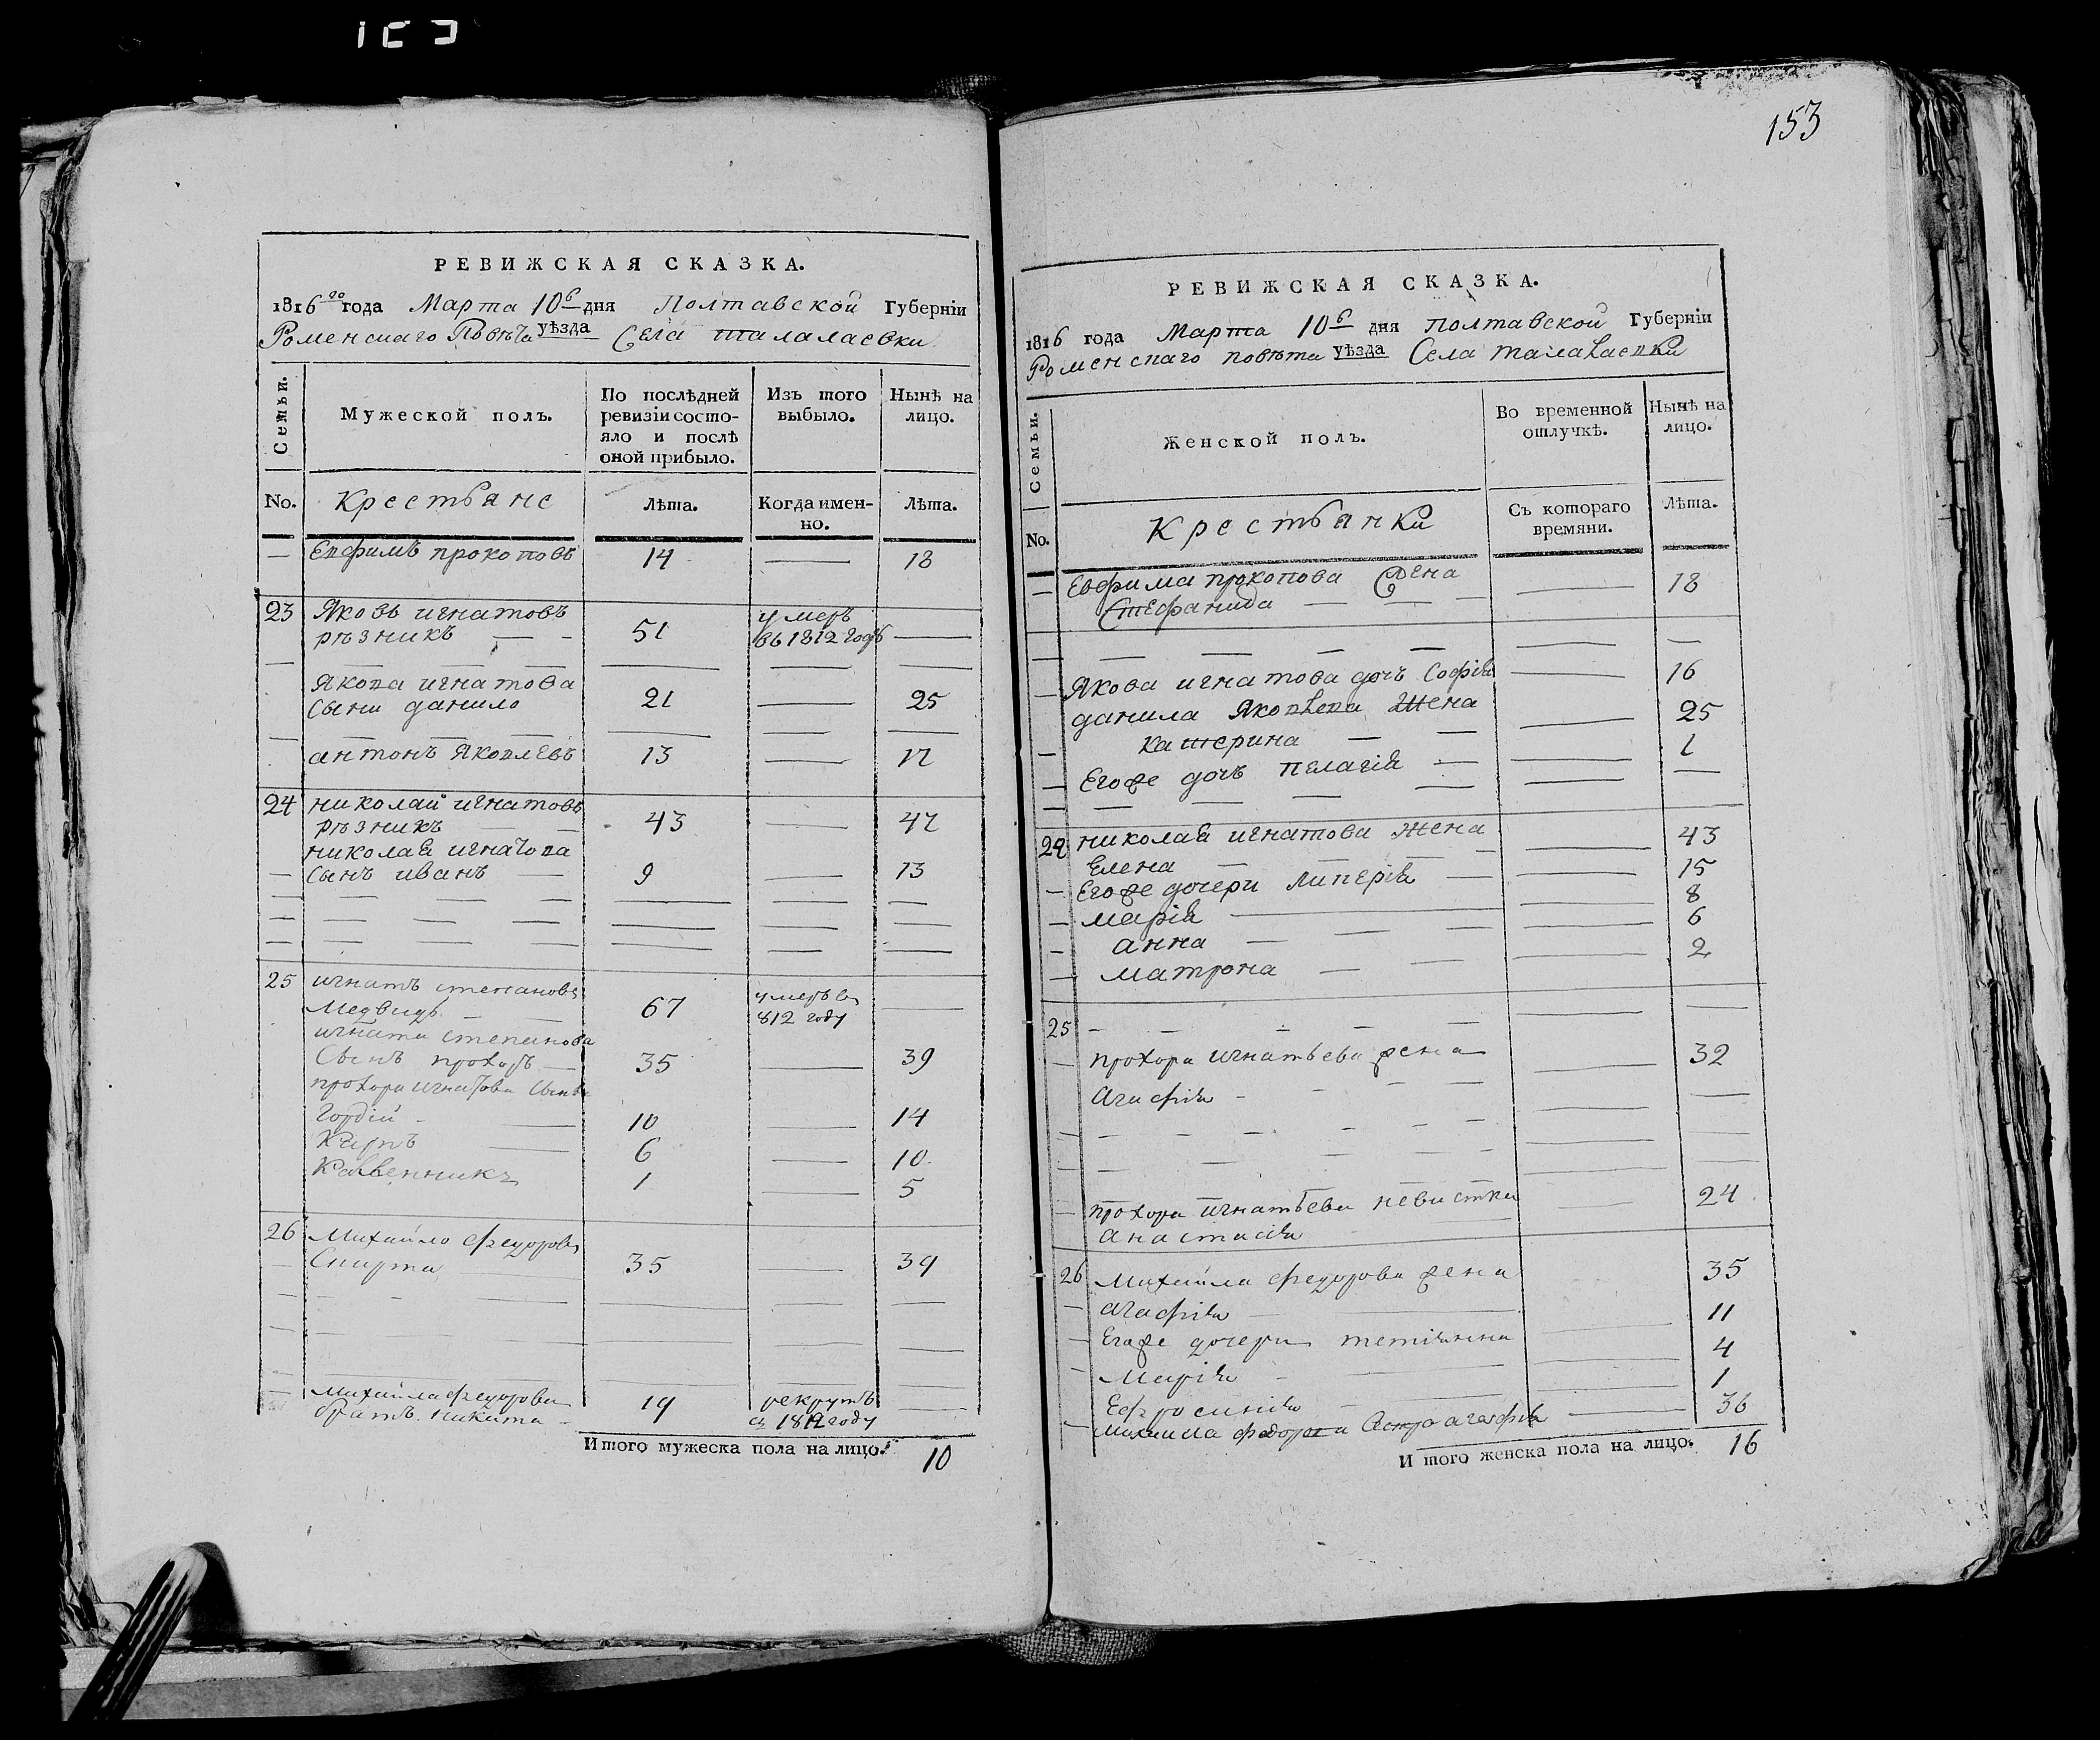 153
РЕВИЖСКАЯ СКАЗКА.
1816го года Марта 10б дня Полтавской Губерніи
Роменскаго Повѣта уѣзда Села талалаевки
Семьи.
Мужеской полъ.
По послѣдней ревизіи состояло и послѣ оной прибыло.
Изъ того выбыло.
Нынѣ на лицо.
No. Крестьяне Лѣта. Когда именно. Лѣта.
— Евфимъ прокоповъ 14 — 18
23 Яковъ игнатовъ умеръ
рѣзникъ — - 51 въ 1812 годѣ —
Якова игнатова
сыни данило 21 — 25
антонъ Яковлевъ 13 — 17
24 николай игнатовъ
рѣзникъ 43 — 47
николая игнатова
— сынъ иванъ — 9 — 13
25 игнатъ степановъ умеръ въ
Медвидь — — 67 812 году —
игната степанова
Сынъ прохоръ — 35 — 39
прохора игнатова сыны
Гордій - 10 — 14
Карпъ 6 — 10
1 — 5
26 Михайло федоровъ
35 — 39
Михайла федорова рекрутъ
братъ никита - 19 въ 1812 году —
Итого мужеска пола на лицо. 10
РЕВИЖСКАЯ СКАЗКА.
1816 года Марта 10б дня полтавской Губерніи
Роменскаго повѣта уѣзда Села талалаевки
Семьи.
Женской полъ.
Во временной отлучкѣ.
Нынѣ на лицо.
No. Крестьянки Съ котораго времяни. Лѣта.
— Евфима прокопова жена — 18
Стефанида — — —
— Якова игнатова дочъ Софія — 16
данила Яковлева Жена — 25
катерина — —
— Егоже дочъ пелагія — — 1
24 николая игнатова жена — 43
Елена — — —
— Егоже дочери липерія — — 15
— марія — 8
— анна — — — 6
— матрона — — — 2
25 - - - - -
— прохора игнатьева жена — 32
Агафия - - - -
— прохора игнатьева невистка — 24
анастасия
26 Михайла федорова жена 35
— агафия —
— Егоже дочери тетіянна — 11
— Марія - — 4
Ефросинія — 1
— михаила федорова сестра агафія — 36
Итого женска пола на лицо. 16